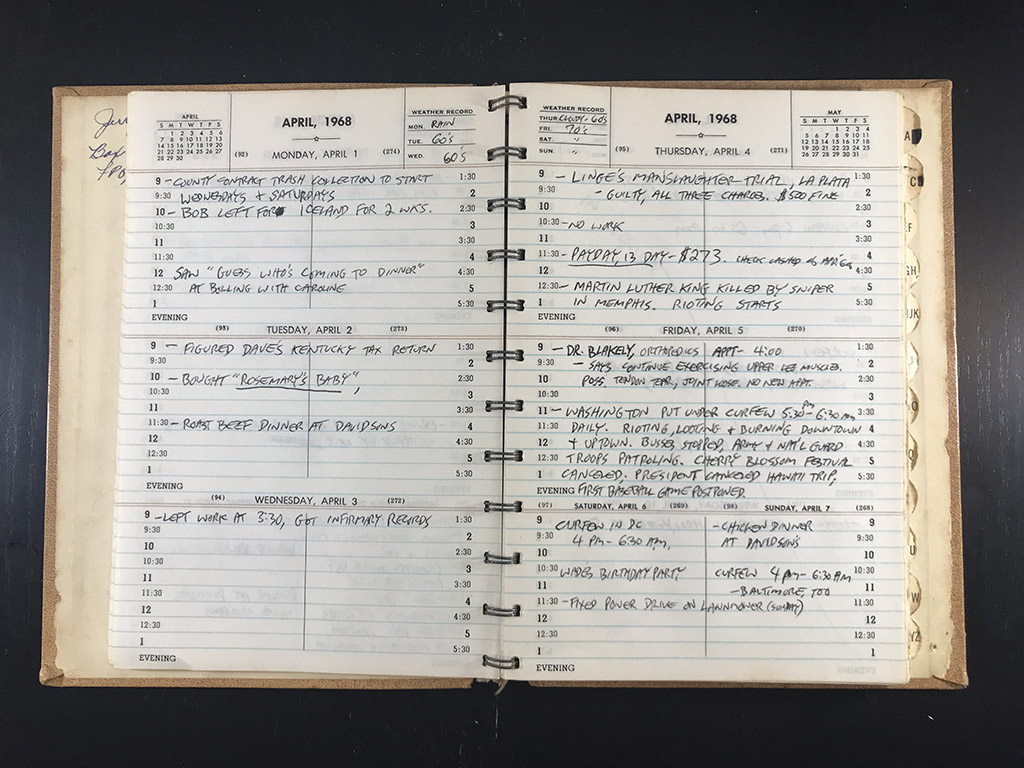 Jerr
Box
APRIL
S M T W T F S
1 2 3 4 5 6
7 8 9 10 11 12 13
14 15 16 17 18 19 20
21 22 23 24 25 26 27
28 29 30
APRIL, 1968
WEATHER RECORD
MON. RAIN
TUE. 60's
WED. 60's
(92) MONDAY, APRIL 1 (274)
9 - COUNTY CONTRACT TRASH KOLLECTION TO START 1:30
9:30 WEDNESDAYS + SATURDAYS 2
10 - BOB LEFT FOR ICELAND FOR 2 WKS. 2:30
10:30 3
11 3:30
11:30 4
12 SAW "GUESS WHO'S COMING TO DINNER" 4:30
12:30 AT BOLLING WITH CAROLINE 5
1 5:30
EVENING
(93) TUESDAY, APRIL 2 (273)
9 - FIGURED DAVE'S KENTUCKY TAX RETURN 1:30
9:30 2
10 - BOUGHT "ROSEMARY'S BABY", 2:30
10:30 3
11 3:30
11:30 - ROAST BEEF DINNER AT DAVIDSONS 4
12 4:30
12:30 5
1 5:30
EVENING
(94) WEDNESDAY, APRIL 3 (272)
9 - LEFT WORK AT 3:30, GOT INFIRMARY RECORDS 1:30
9:30 2
10 2:30
10:30 3
11 3:30
11:30 4
12 4:30
12:30 5
1 5:30
EVENING
WEATHER RECORD
THUR. CLOUDY - 60's
FRI. 70's
SAT. "
SUN. "
APRIL, 1968
MAY
S M T W T F S
1 2 3 4
5 6 7 8 9 10 11
12 13 14 15 16 17 18
19 20 21 22 23 24 25
26 27 28 29 30 31
(95) THURSDAY, APRIL 4 (271)
9 - LINGE'S MANSLAUGHTER TRIAL, LA PLATA 1:30
9:30 - GUILTY, ALL THREE CHARGES. $500 FINE 2
10 2:30
10:30 - NO WORK 3
11 3:30
11:30 - PAYDAY, 13 DAY - $273. CHECK CASHED 4
12 4:30
12:30 - MARTIN LUTHER KING KILLED BY SNIPER 5
1 IN MEMPHIS. RIOTING STARTS 5:30
EVENING
(96) FRIDAY, APRIL 5 (270)
9 - DR. BLAKELY, ORTHOPEDICS APPT - 4:00 1:30
9:30 - SAYS CONTINUE EXERCISING UPPER LEG MUSCLES. 2
10 POSS. TENDON TEAR, JOINT LOOSE. NO NEW APPT. 2:30
10:30 3
11 - WASHINGTON PUT UNDER CURFEW 5:30 PM - 6:30 AM 3:30
11:30 DAILY. RIOTING, LOOTING + BURNING DOWNTOWN 4
12 + UPTOWN. BUSES STOPPED, ARMY + NAT'L GUARD 4:30
12:30 TROOPS PATROLING. CHERRY BLOSSOM FESTIVAL 5
1 CANCELED. PRESIDENT CANCELED HAWAII TRIP, 5:30
EVENING FIRST BASEBALL GAME POSTPONED.
(97) SATURDAY, APRIL 6 (269) (98) SUNDAY, APRIL 7 (268)
9 CURFEW IN DC - CHICKEN DINNER 9
9:30 4 PM - 6:30 AM, AT DAVIDSON'S 9:30
10 10
10:30 WADES BIRTHDAY PARTY CURFEW 4 pm - 6:30 AM 10:30
11 - BALTIMORE, TOO 11
11:30 - FIXED POWER DRIVE ON LAWNMOWER (SUNDAY) 11:30
12 12
12:30 12:30
1 1
EVENING
A
C
EF
GH
IJK
U
W
YZ